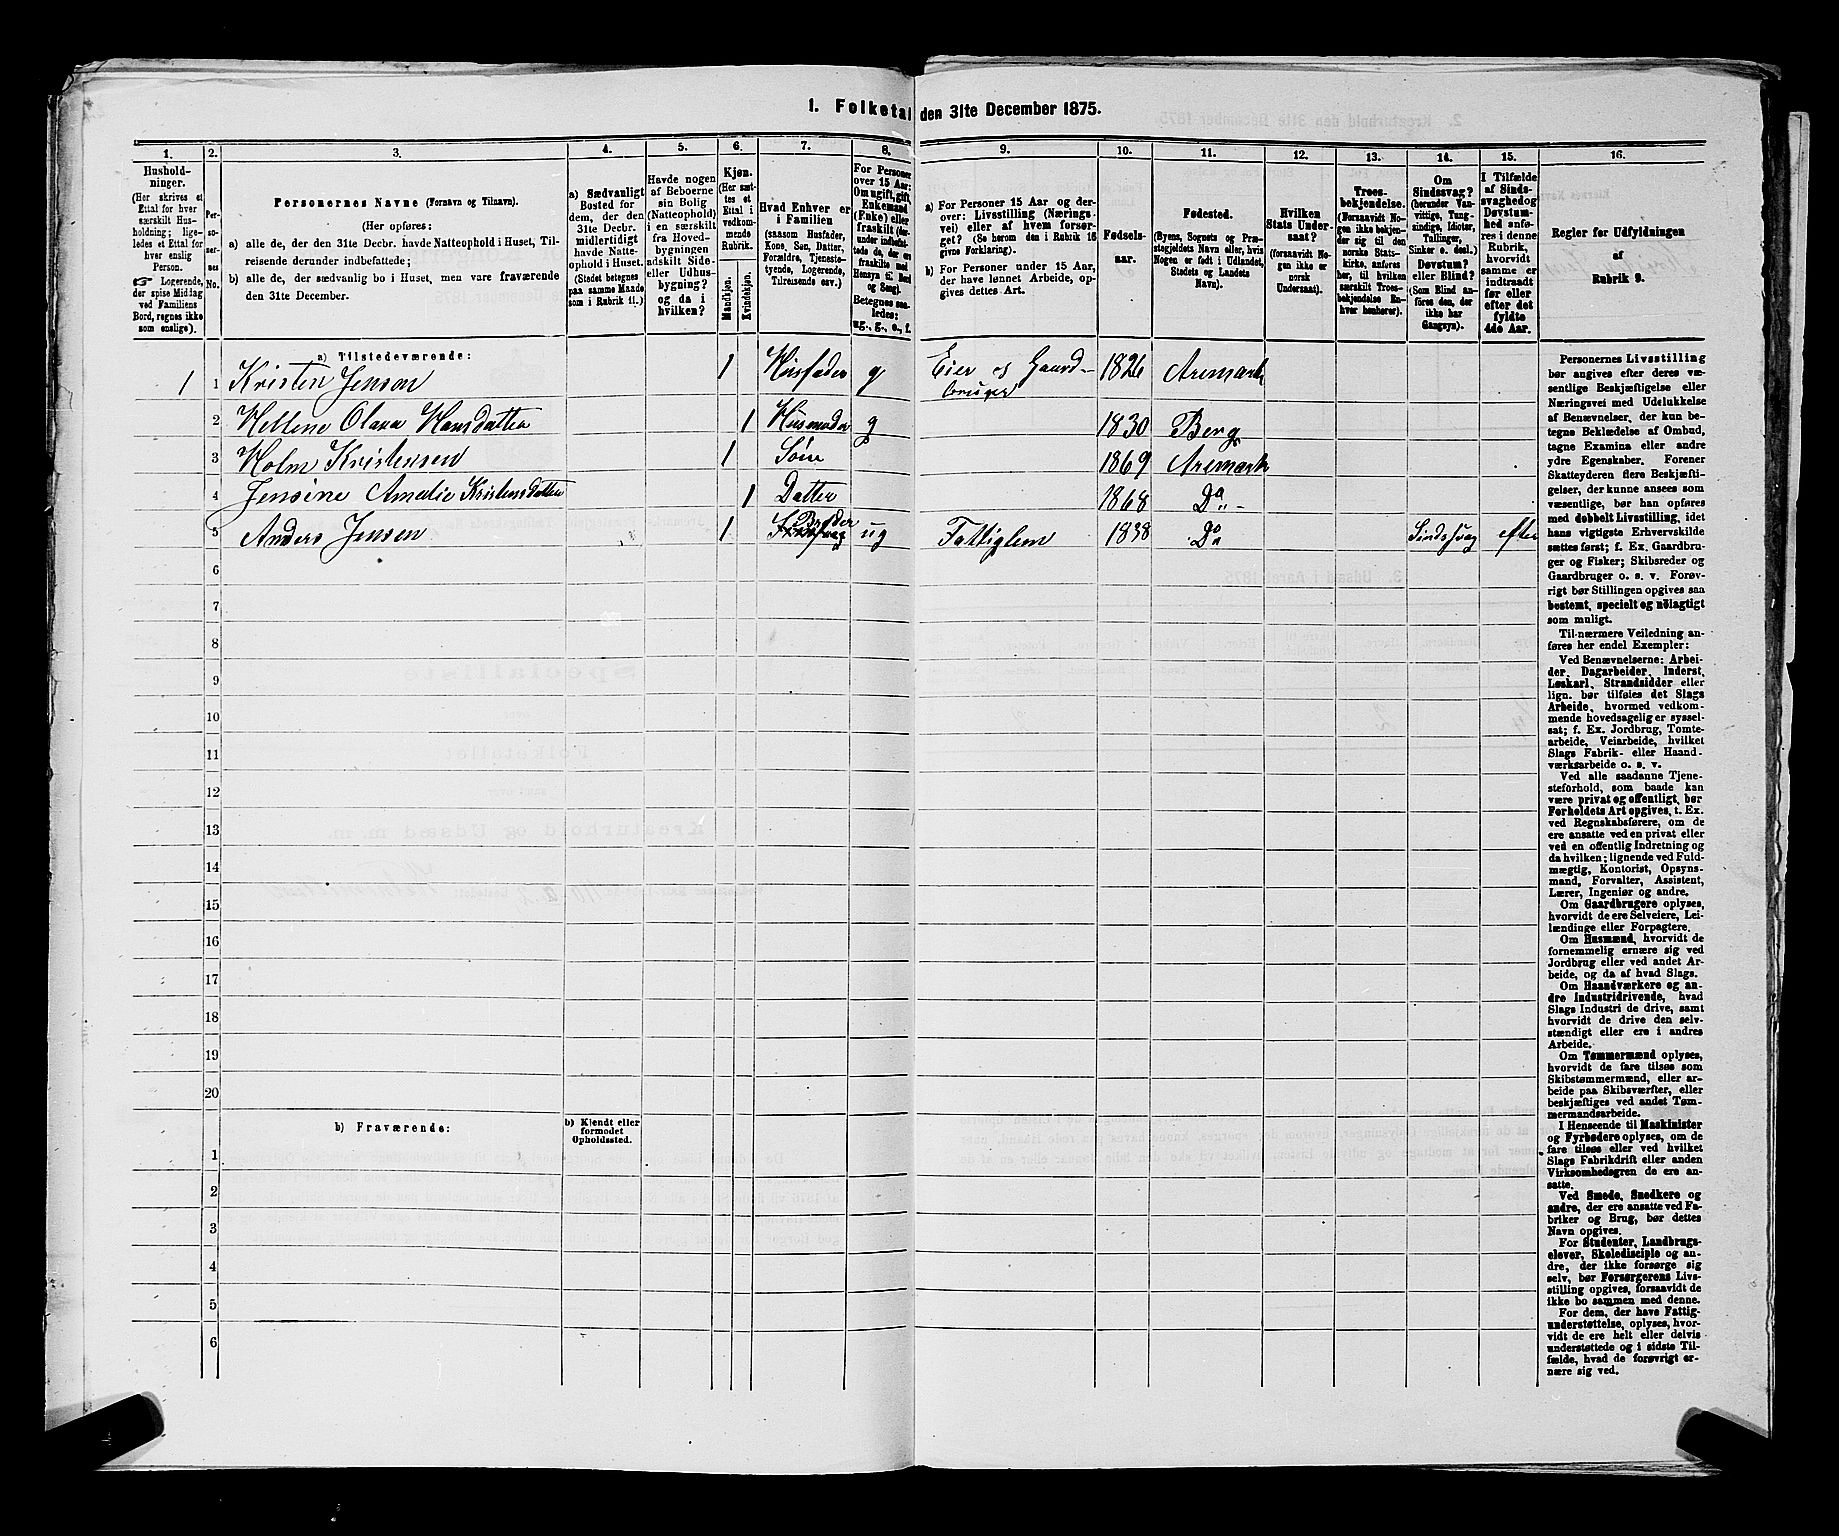 1. Folketal den 31te December 1875.
1. 2. 3. 4. 5. 6. 7. 8. 9. 10. 11. 12. 13. 14. 15. 16.
Hushold-
ninger.
(Her skrives et
Ettal for hver
særskilt Hus-
holdning; lige-
ledes et Ettal for
hver enslig
Person.
☞ Logerende,
der spise Middag
ved Familiens
Bord, regnes ikke
som enslige).
Per-
so-
ner-
nes
No.
Personernes Navne (Fornavn og Tilnavn).
(Her opføres:
a) alle de, der den 31te Decbr. havde Natteophold i Huset, Til-
reisende derunder indbefattede;
b) alle de, der sædvanlig bo i Huset, men vare fraværende
den 31te December.
a) Sædvanligt
Bosted for
dem, der den
31te Decbr.
midlertidigt
havde Natte-
ophold i Huset.
(Stedet betegnes
paa samme Maade
som i Rubrik 11.)
Havde nogen
af Beboerne
sin Bolig
(Natteophold)
i en særskilt
fra Hoved-
bygningen
adskilt Side-
eller Udhus-
bygning?
og da i
hvilken?
Kjøn.
(Her sæt-
tes et
Ettal i
vedkom-
mende
Rubrik.
Mandkjøn.
Kvindekjøn.
Hvad Enhver er
i Familien
(saasom Husfader,
Kone, Søn, Datter,
Forældre, Tjeneste-
tyende, Logerende,
Tilreisende osv.)
For Personer
over 15 Aar:
Om ugift, gift,
Enkemand
(Enke) eller
fraskilt (der-
under indbefat-
tede de, der ere
fraskilte med
Hensyn til Bord
og Seng).
Betegnes saa-
ledes:
ug., g., e., f.
a) For Personer 15 Aar og der-
over: Livsstilling (Nærings-
vei) eller af hvem forsør-
get? (Se herom den i Rubrik 16
givne Forklaring).
b) For Personer under 15 Aar,
der have lønnet Arbeide, op-
gives dettes Art.
Fødsels-
aar.
Fødested.
(Byens, Sognets og Præ-
stegjeldets Navn eller, hvis
Nogen er født i Udlandet,
Stedets og Landets
Navn).
Hvilken
Stats Under-
saat?
(forsaavidt No-
gen ikke er
norsk
Undersaat).
Troes-
bekjendelse.
(Forsaavidt No-
gen ikke bekjen-
der sig til den
norske Stats-
kirke, anføres
her, til hvilken
særskilt Troes-
bekjendelse En-
hver henhører).
Om
Sindssvag?
(herunder Van-
vittige, Tung-
sindige, Idioter,
Tullinger,
Sinker o. desl.)
Døvstum?
eller Blind?
(Som Blind an-
føres den, der
ikke har
Gangsyn).
I Tilfælde
af Sinds-
svaghed og
Døvstum-
hed anfø-
res i denne
Rubrik,
hvorvidt
samme er
indtraadt
før eller
efter det
fyldte
4de Aar.
Regler for Udfyldningen
af
Rubrik 9.
a) Tilstedeværende:
1 1 Kristen Jenson 1 Husfader g Eier og Gaard-
bruger 1826 Aremark
2 Hellene Olava Hansdatter 1 Husmoder g 1830 Berg
3 Holm Kristensen 1 Søn 1869 Aremark
4 Jensine Amalie Kristensdatter 1 Datter 1868 Do
5 Anders Jensen 1 Broder ug Fattiglem 1838 Do Sindssvag efter
6
7
8
9
10
11
12
13
14
15
16
17
18
19
20
b) Fraværende:
b) Kjendt eller
formodet
Opholdssted.
1
2
3
4
5
6
Personernes Livsstilling
bør angives efter deres væ-
sentlige Beskjæftigelse eller
Næringsvei med Udelukkelse
af Benævnelser, der kun be-
tegne Beklædelse af Ombud,
tagne Examina eller andre
ydre Egenskaber. Forener
Skatteyderen flere Beskjæfti-
gelser, der kunne ansees som
væsentlige, bør han opføres
med dobbelt Livsstilling, idet
hans vigtigste Erhvervskilde
sættes først; f. Ex. Gaardbru-
ger og Fisker; Skibsreder og
Gaardbruger o. s. v. Forøv-
rigt bør Stillingen opgives saa
bestemt, specielt og nöiagtigt
som muligt.
Til nærmere Veiledning an-
føres her endel Exempler:
Ved Benævnelserne: Arbei-
der, Dagarbeider, Inderst,
Løskarl, Strandsidder eller
lign. bør tilføies det Slags
Arbeide, hvormed vedkom-
mende hovedsagelig er syssel-
sat; f. Ex. Jordbrug, Tomte-
arbeide, Veiarbeide, hvilket
Slags Fabrik- eller Haand-
værksarbeide o. s. v.
Ved alle saadanne Tjene-
steforhold, som baade kan
være privat og offentligt, bør
Forholdets Art opgives, t. Ex.
ved Regnskabsførere, om de
ere ansatte ved en privat eller
ved en offentlig Indretning og
da hvilken; lignende ved Fuld-
mægtig, Kontorist, Opsyns-
mand, Forvalter, Assistent,
Lærer, Ingeniør og andre.
Om Gaardbrugere oplyses,
hvorvidt de ere Selveiere, Lei-
lændinge eller Forpagtere.
Om Husmænd, hvorvidt de
fornemmelig ernære sig ved
Jordbrug eller ved andet Ar-
beide, og da af hvad Slags.
Om Haandværkere og an-
dre Industridrivende, hvad
Slags Industri de drive, samt
hvorvidt de drive den selv-
stændigt eller ere i andres
Arbeide.
Om Tømmermænd oplyses,
hvorvidt de fare tilsøs som
Skibstømmermænd, eller ar-
beide paa Skibsværfter, eller
beskjæftiges ved andet Tøm-
mermandsarbeide.
I Henseende til Maskinister
og Fyrbødere oplyses, om de
fare tilsøs eller ved hvilket
Slags Fabrikdrift eller anden
Virksomhedsgren de ere an-
satte.
Ved Smede, Snedkere og
andre, der ere ansatte ved Fa-
briker og Brug, bør dettes
Navn opgives.
For Studenter, Landbrugs-
elever, Skoledisciple og an-
dre, der ikke forsørge sig
selv, bør Forsørgerens Livs-
stilling opgives, forsaavidt de
ikke bo sammen med denne.
For dem, der have Fattig-
understøttelse, oplyses, hvor-
vidt de ere helt eller delvis
understøttede og i sidste Til-
fælde, hvad de forøvrigt er-
nære sig ved.